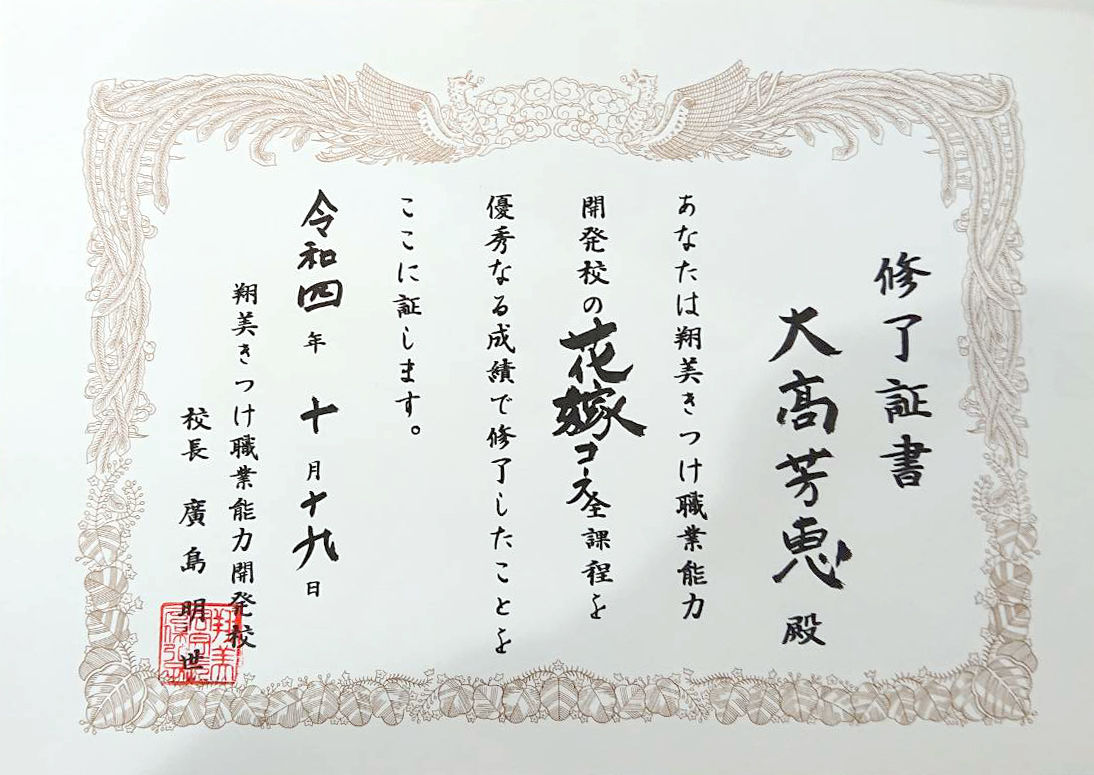 修了証書
大髙芳恵 殿
あなたは翔美きつけ職業能力
開発校の花嫁コース全課程を
優秀なる成績で修了したことを
ここに証します。
令和四年 十月十九日
翔美きつけ職業能力開発校
校長 廣島明世